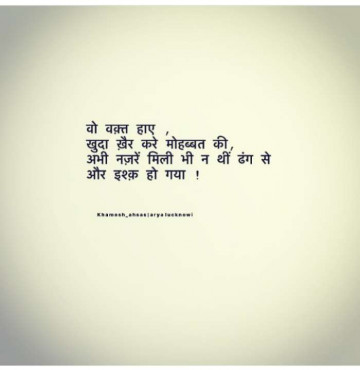 वो वक़्त हाए ,
खुदा ख़ैर करे मोहब्बत की,
अभी नज़रें मिली भी न थीं ढंग से
और इश्क़ हो गया !
Khamosh_ahsas|arya lucknowi